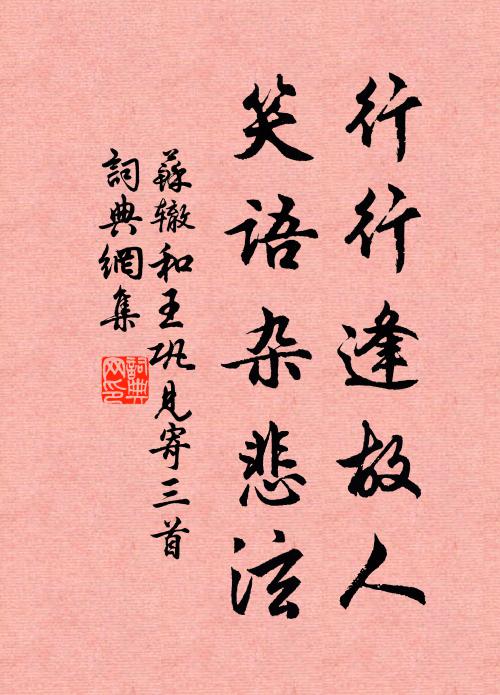 行行逢故人
笑语杂悲泫
蘇辙和王巩見寄三首
詞典網集
詞典網印